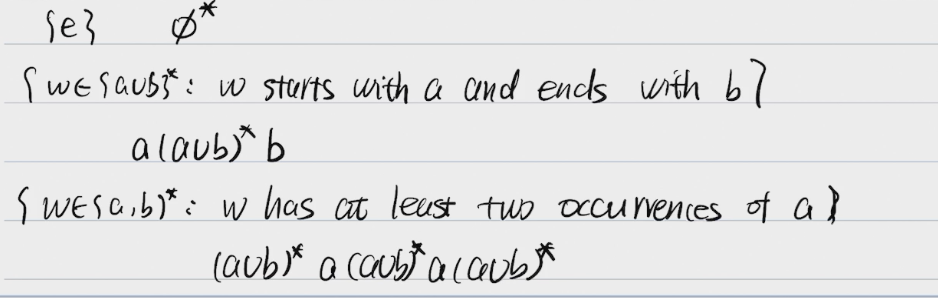 {e} ∅*
{w∈{a∪b}*: w starts with a and ends with b}
a(a∪b)*b
{w∈{a,b)*: w has at least two occurrences of a}
(a∪b)* a(a∪b)*a(a∪b)*